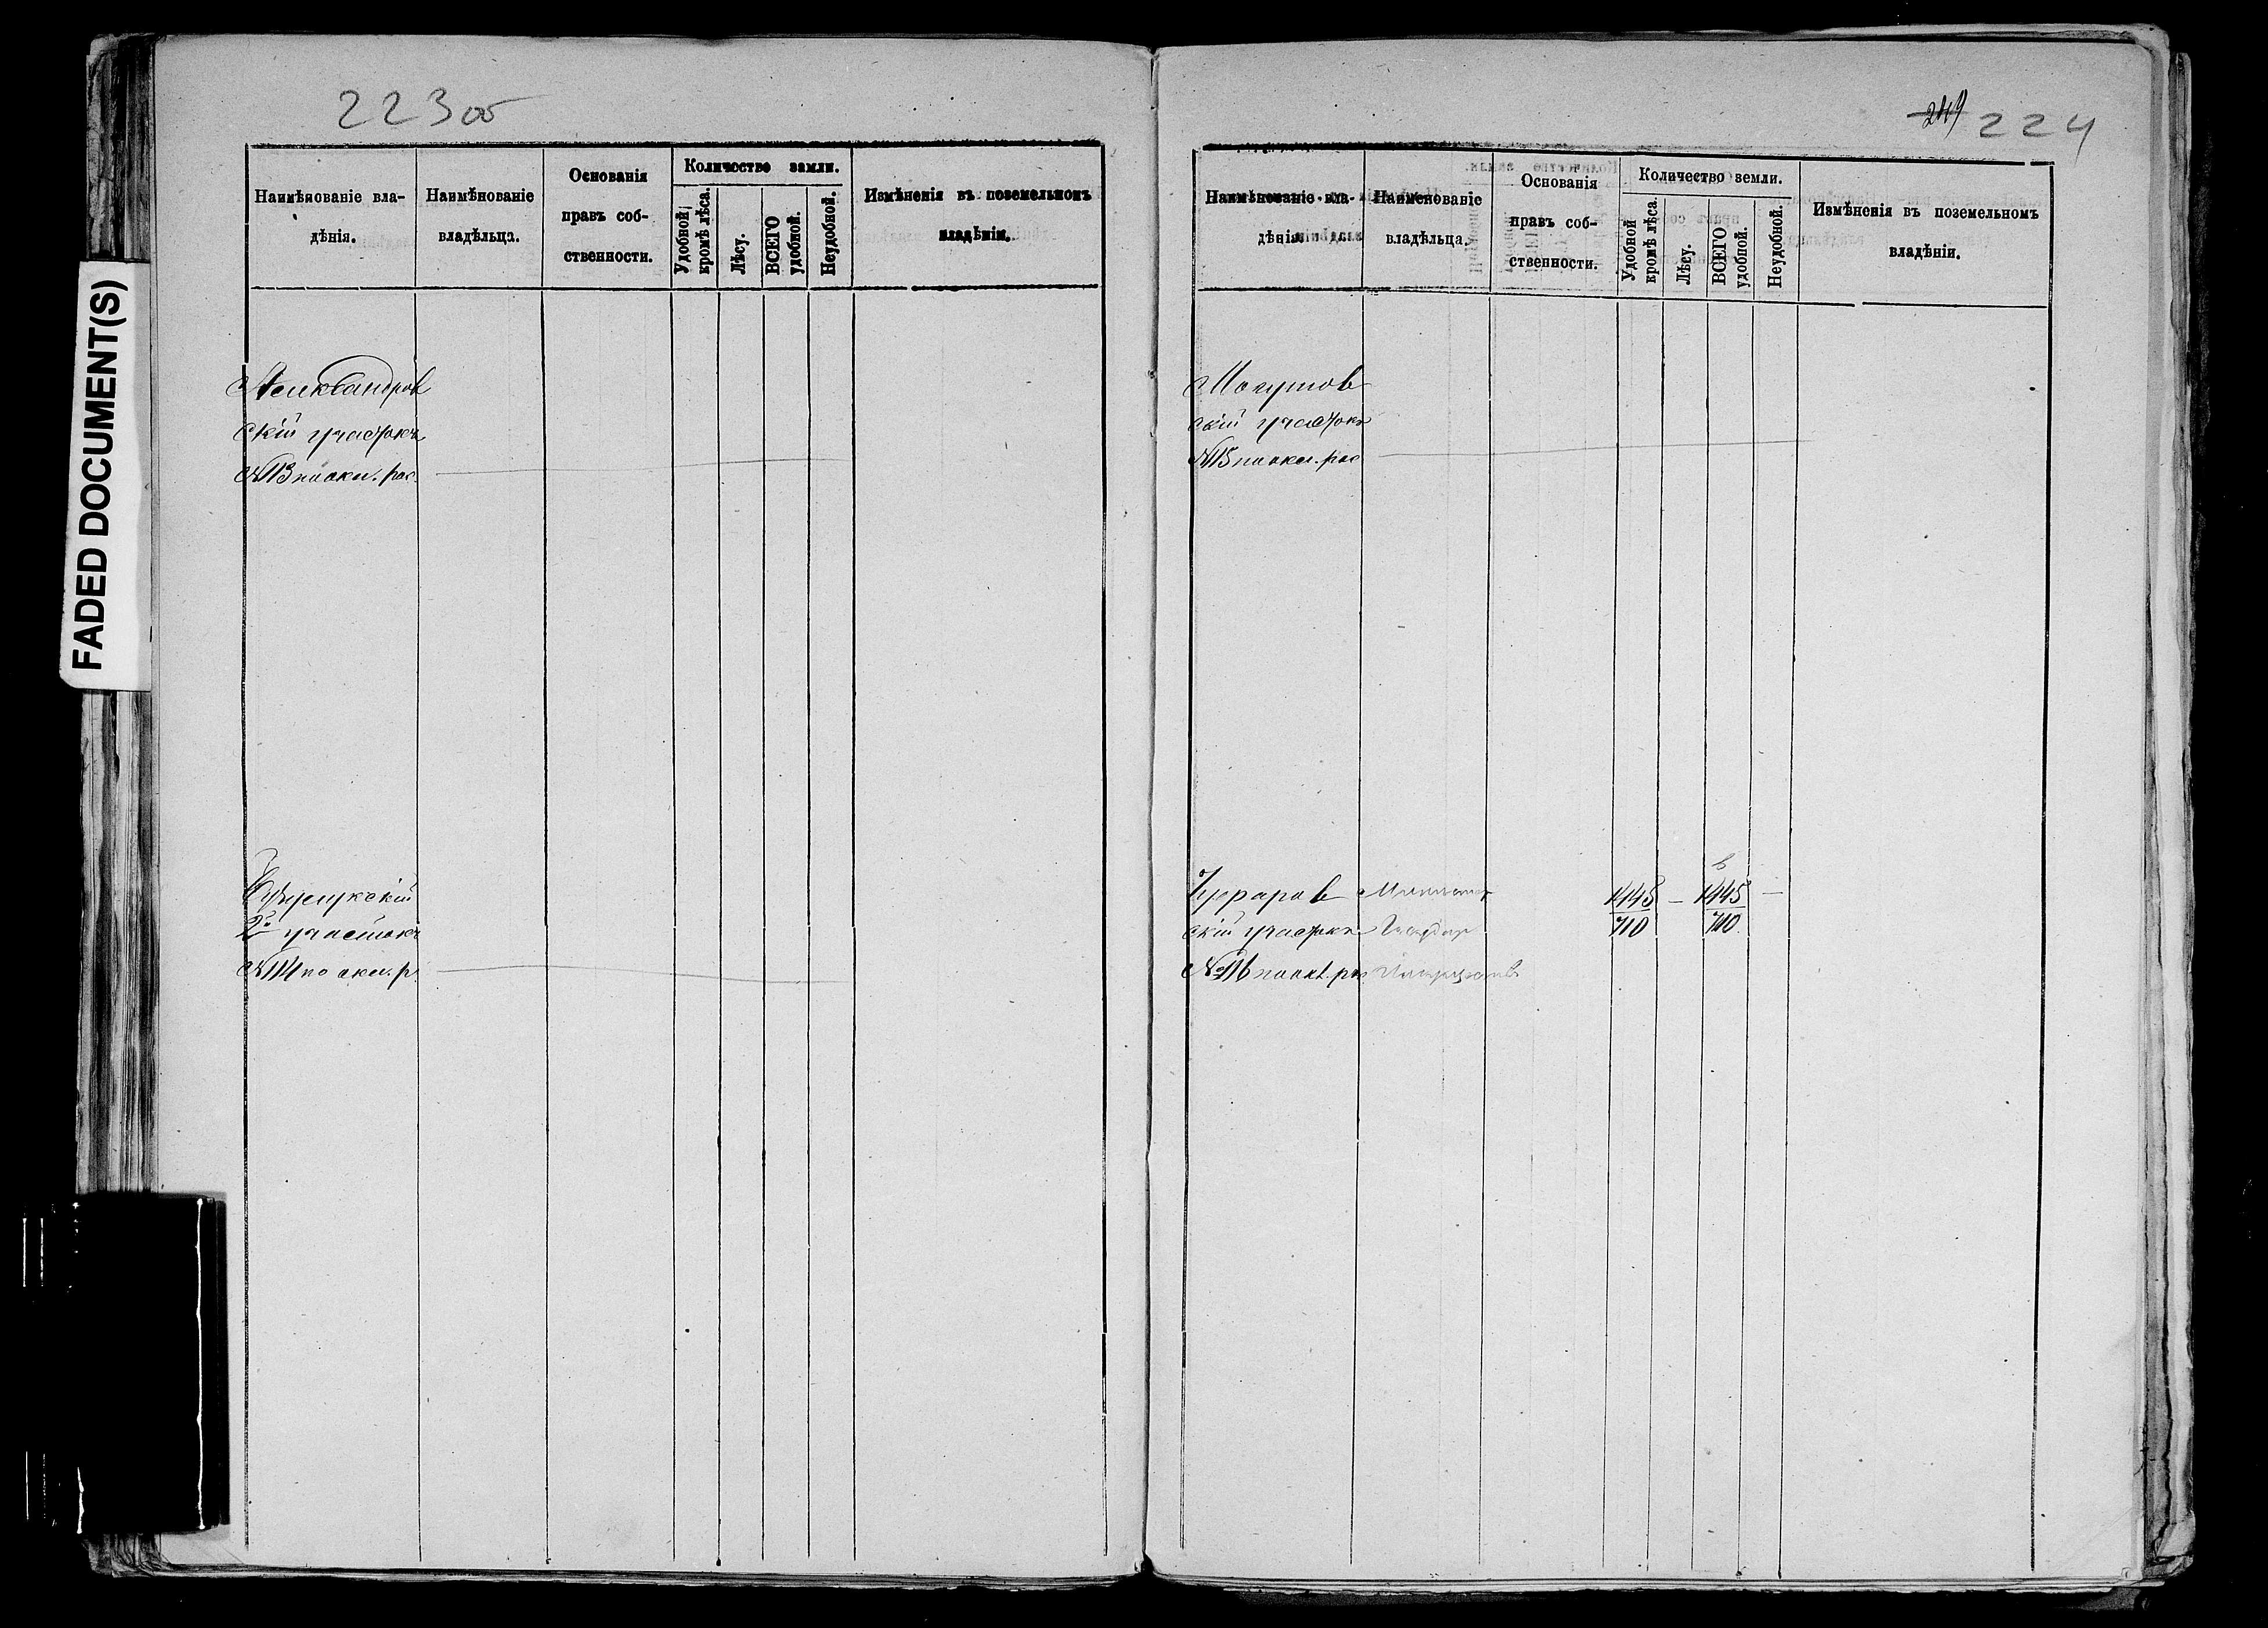 223 об
FADED DOCUMENT(S)
Наимѣнованіе вла-
дѣнія.
Наимѣнованіе
владѣльца.
Основанія
правъ соб-
ственности.
Количество земли.
Удобной
кромѣ лѣса.
Лѣсу.
ВСЕГО
удобной.
Неудобной.
Измѣненія въ поземельномъ
владѣніи.
Александров
скій участокъ
№ 113 по окл. рос.
2й участокъ
№ 114 по окл. р.
249 224
Наимѣнованіе вла-
дѣнія.
Наимѣнованіе
владѣльца.
Основанія
правъ соб-
ственности.
Количество земли.
Удобной
кромѣ лѣса.
Лѣсу.
ВСЕГО
удобной.
Неудобной.
Измѣненія въ поземельномъ
владѣніи.
скій участокъ
№ 115 по окл. рос
1445 — 1445 —
скій участокъ 710 710
№ 116 по окл. рос